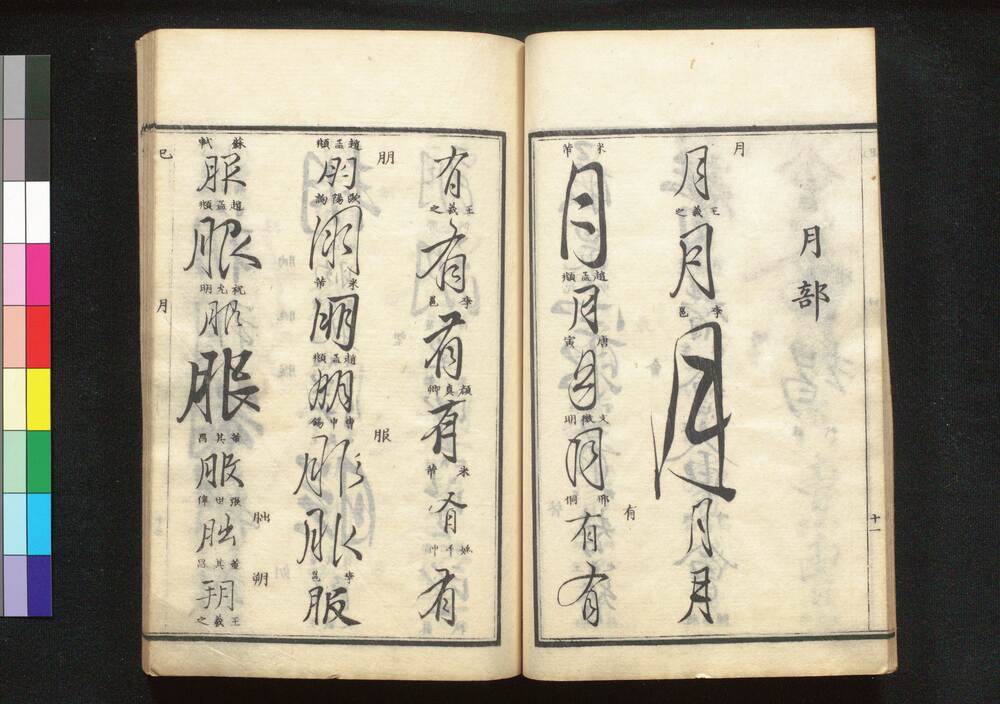 月部
十一
月
月
王羲之
月
李邕
月
月
月
米芾
月
趙孟頫
月
唐寅
月
文徵明
月
邢侗
有
有
有
有
王羲之
有
李邕
有
顏真卿
有
米芾
有
有
朋
趙孟頫
朋
歐陽詢
朋
米芾
朋
趙孟頫
朋
服
服
服
李邕
服
蘇軾
服
趙孟頫
服
祝允明
服
服
董其昌
服
朏
朏
董其昌
朔
朔
王羲之
巳
月